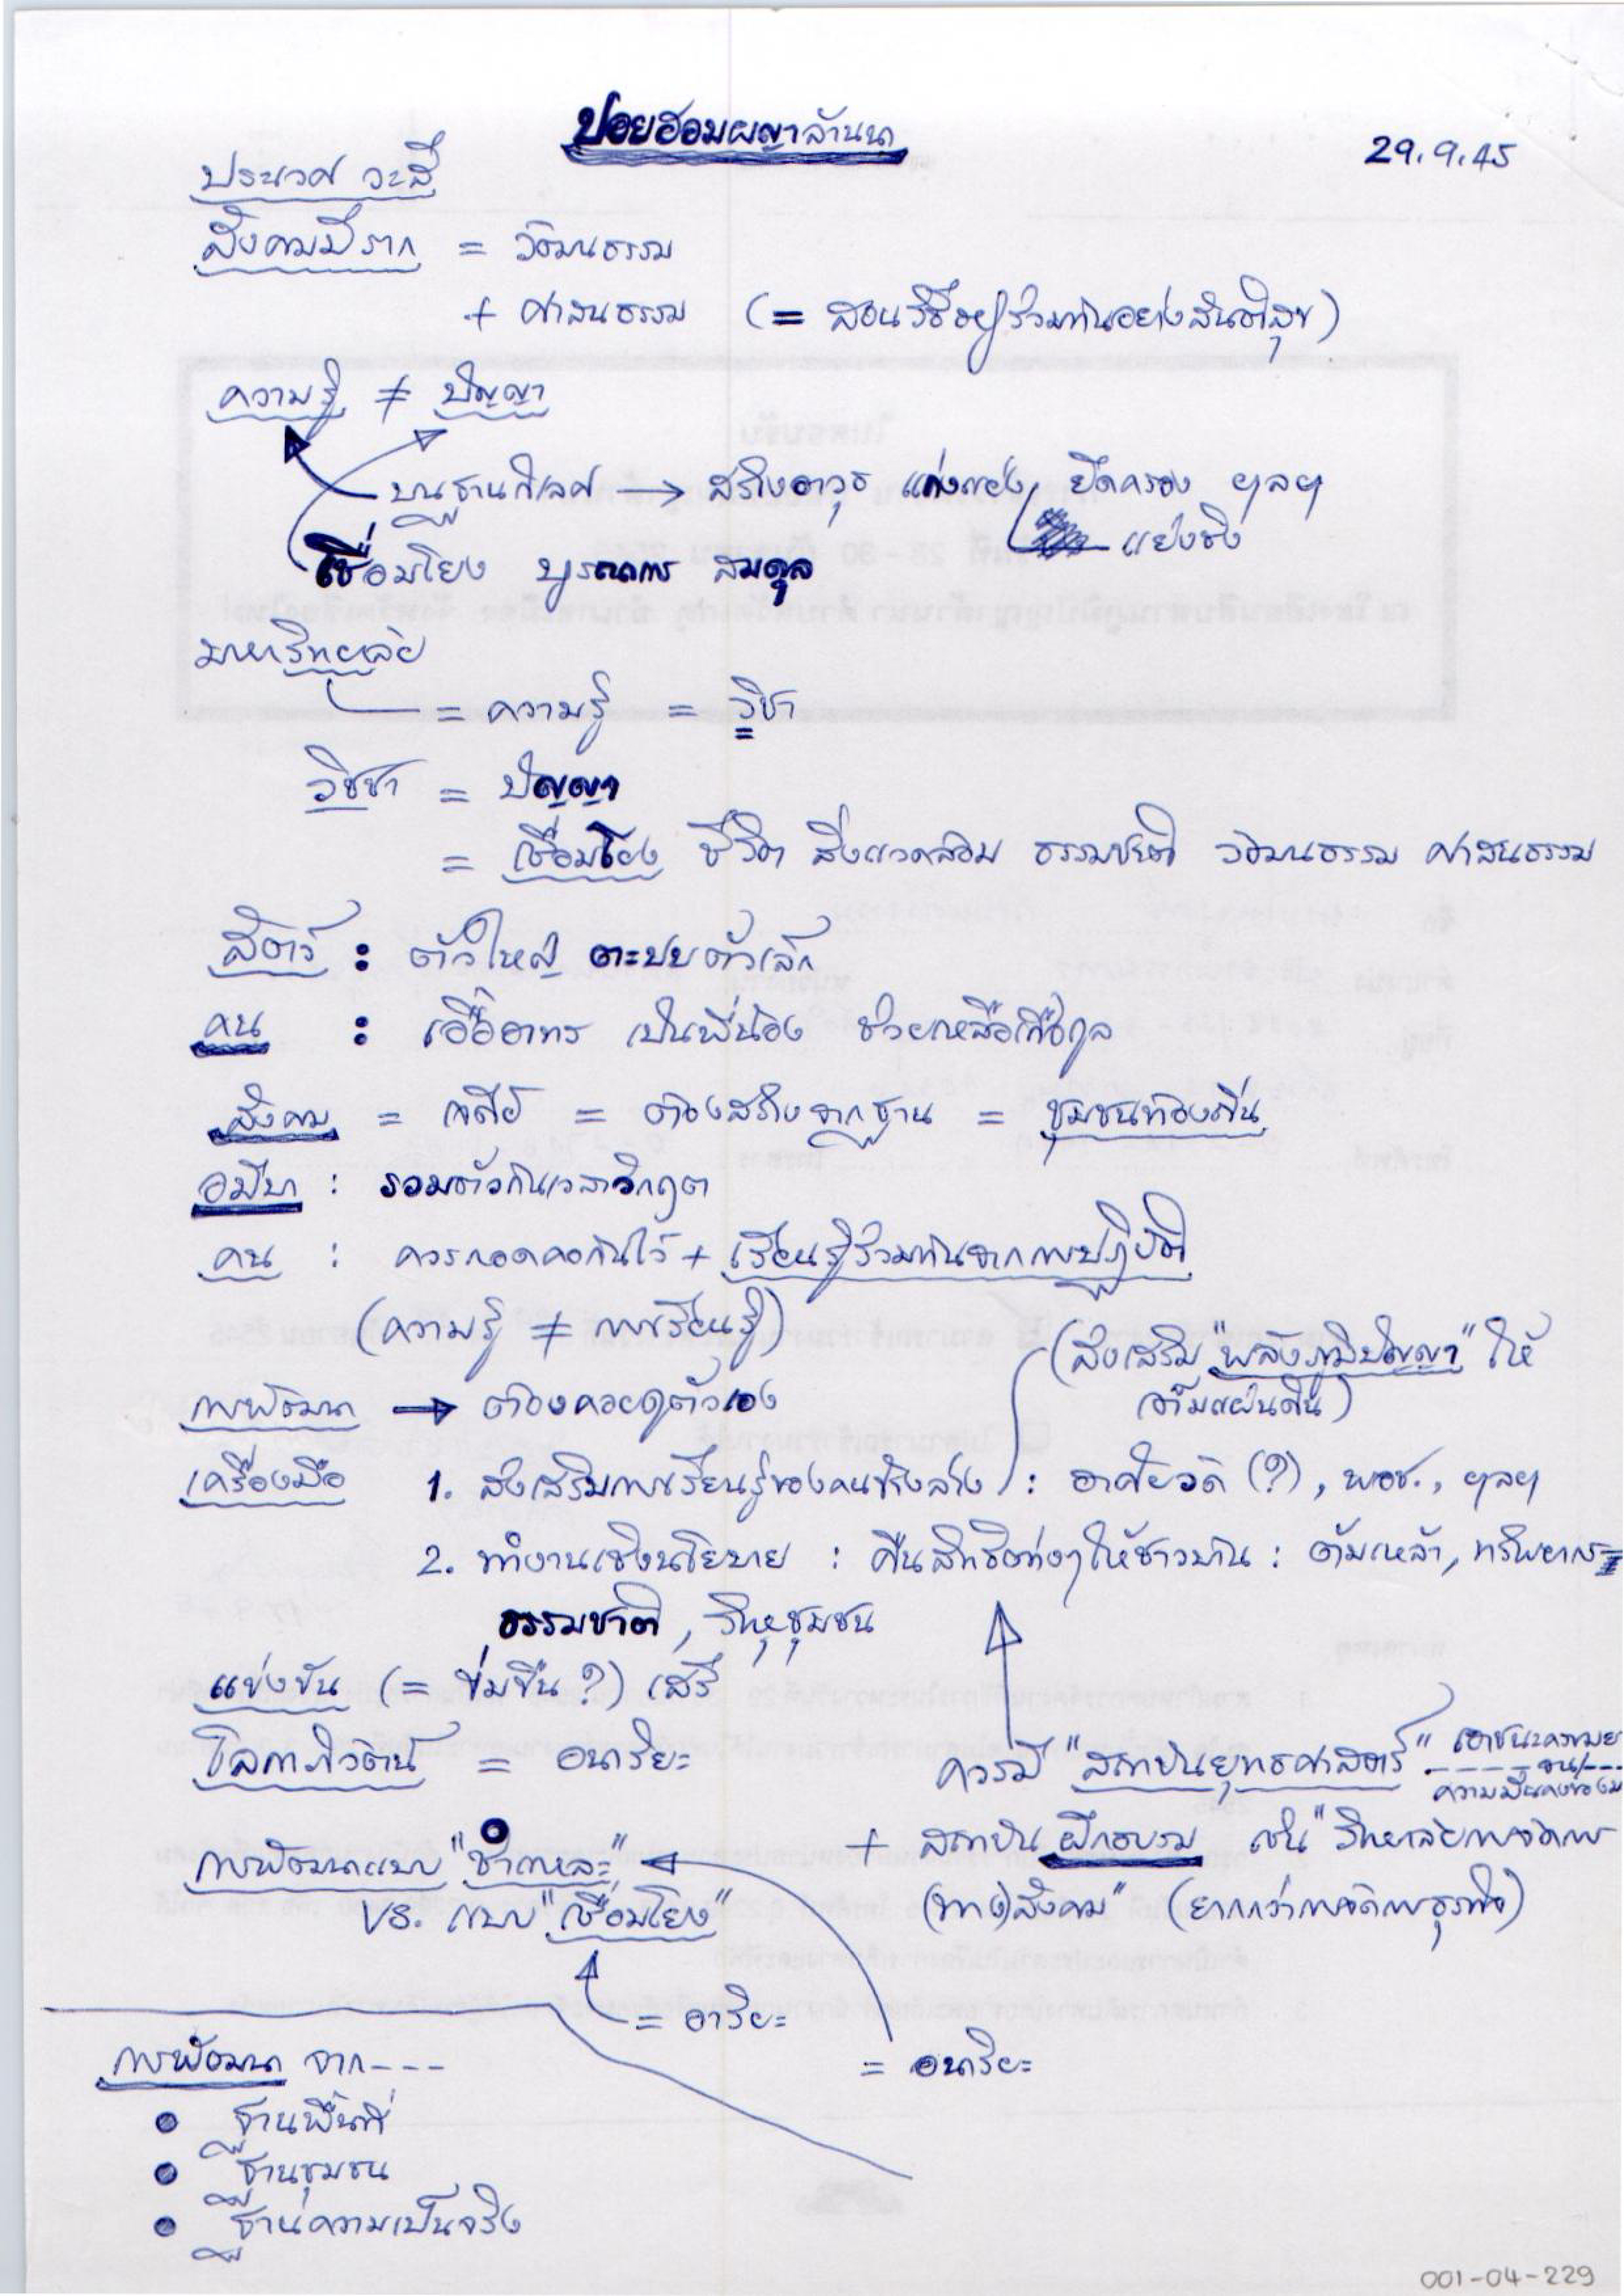 ปอยฮอมผญาล้านนา
29.9.45
ประเวศ วะสี
สังคมมีราก = วัฒนธรรม
+ ศาสนธรรม (= สอนวิธีอยู่ร่วมกันอย่างสันติสุข)
ความรู้ ≠ ปัญญา
บนฐานกิเลศ → สร้างอาวุธ แก่งแย่ง ยึดครอง ฯลฯ
แย่งชิง
เชื่อมโยง บูรณาการ สมดุล
มหาวิทยาลัย
= ความรู้ = วิชา
วิชชา = ปัญญา
= เชื่อมโยง ชีวิต สิ่งแวดล้อม ธรรมชาติ วัฒนธรรม ศาสนธรรม
สัตว์ : ตัวใหญ่ ตะปบตัวเล็ก
คน : เอื้ออาทร เป็นพี่น้อง ช่วยเหลือเกื้อกูล
สังคม = เจดีย์ = ต้องสร้างจากฐาน = ชุมชนท้องถิ่น
อมีบา : รวมตัวกันเวลาวิกฤต
คน : ควรกอดคอกันไว้ + เรียนรู้ร่วมกันจากการปฏิบัติ
(ความรู้ ≠ การเรียนรู้)
(ส่งเสริม "พลังภูมิปัญญา" ให้
เต็มแผ่นดิน)
การพัฒนา → ต้องคอยดูตัวเอง
เครื่องมือ 1. ส่งเสริมการเรียนรู้ของคนข้างล่าง : อาศัยวัด (?), พอช., ฯลฯ
2. ทำงานเชิงนโยบาย : คืนสิทธิต่างๆ ให้ชาวบ้าน : ต้มเหล้า, ทรัพยากร=
ธรรมชาติ, วิทยุชุมชน
แข่งขัน (= ข่มขืน?) เสรี
โลกาภิวัตน์ = อนาริยะ
ควรมี "สถาบันยุทธศาสตร์" เอาชนะความย
----จน/---
ความมั่นคงของม
การพัฒนาแบบ "ชำแหละ"
+ สถาบันฝึกอบรม เช่น "วิทยาลัยการจัดการ
vs. แบบ "เชื่อมโยง"
(ทาง)สังคม" (ยากกว่าการจัดการธุรกิจ)
= อาริยะ
= อนาริยะ
การพัฒนา จาก---
• ฐานพื้นที่
• ฐานชุมชน
• ฐานความเป็นจริง
001-04-229